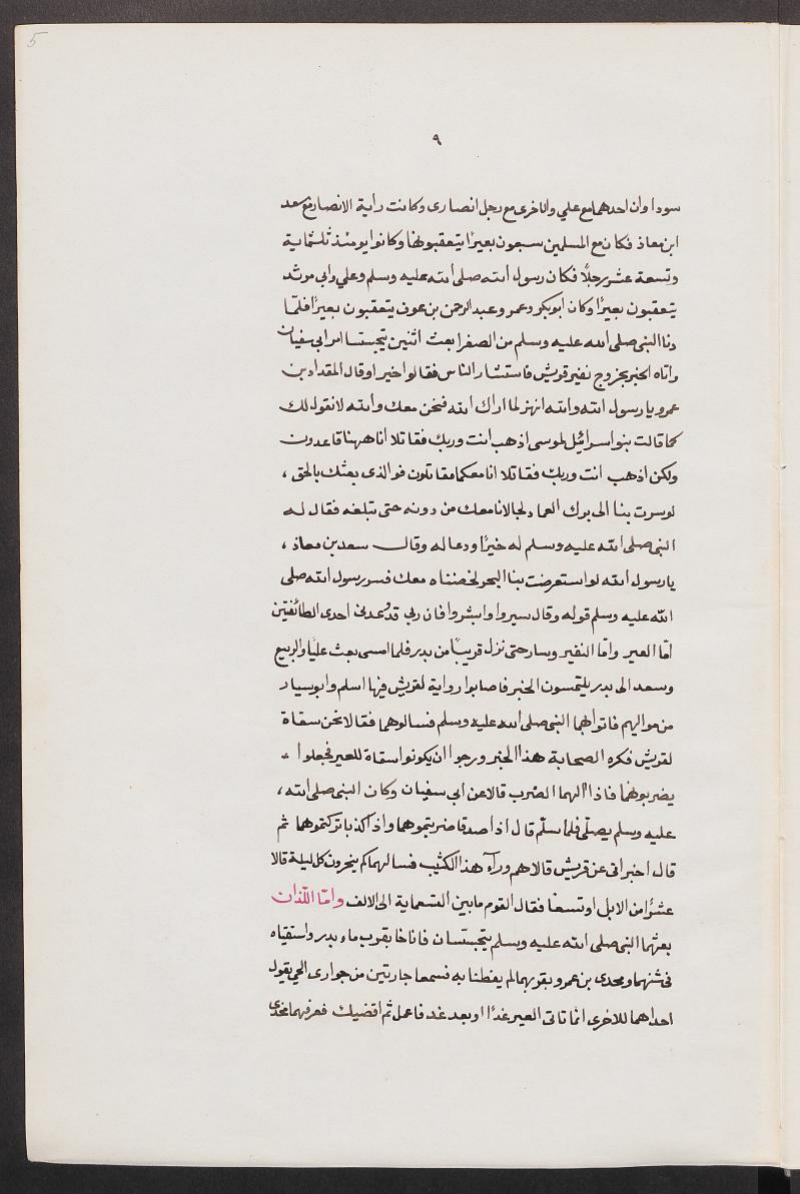 5
٩
سوداوان احدهما مع علي والاخرى مع رجل انصارى وكانت راية الانصار مع سعد
ابن معاذ فكان مع المسلمين سبعون بعيرًا يتعقبونها وكانوا يومئذ ثلثماية
وتسعة عشر رجلًا فكان رسول الله صلى الله عليه وسلم وعلي وابى مرثد
يتعقبون بعيرًا وكان ابوبكر وعمر وعبد الرحمن بن عوف يتعقبون بعيرًا فلمّا
دنا النبى صلى الله عليه وسلم من الصفرا بعث اثنين يتجسسا امر ابى سفيان
واتاه الخبر بخروج نفير قريش فاستشار الناس فقالوا خيرا وقال المقداد بن
عمرو يا رسول الله والله انهز لما اراك الله فنحن معك والله لا نقول لك
كما قالت بنو اسرائيل لموسى اذهب انت وربك فقاتلا انا ههنا قاعدون
ولكن اذهب انت وربك فقاتلا انا معكما مقاتلون فوالذى بعثك بالحق ،
لو سرت بنا الى برك الغماد لجالدنا معك من دونه حتى تبلغه فقال له
النبى صلى الله عليه وسلم له خيرًا ودعا له وقال سعد بن معاذ ،
يا رسول الله لو استعرضت بنا البحر لخضناه معك فسر رسول الله صلى
الله عليه وسلم قوله وقال سيروا وابشروا فان ربى قد وعدنى احدى الطائفتين
امّا العير وامّا النفير وسار حتى نزل قريبًا من بدر فلما امسى بعث عليًا والزبير
وسعد الى بدر يلتمسون الخبر فاصابوا رواية لقريش فيها اسلم وابو سيار
من مواليهم فاتوا بهما النبى صلى الله عليه وسلم فسالوهما فقالا نحن سقاة
لقريش فكره الصحابة هذا الخبر ورجوا ان يكونوا سقاة للعير فجعلوا
يضربونهما فاذا الهما الضرب قالا عن ابى سفيان وكان النبى صلى الله ،
عليه وسلم يصلّى فلما سلّم قال اذا صدقا ضربتموهما واذا كذبا تركتموهما ثم
قال اخبرانى عن قريش قالا هم ورآء هذا الكثيب فسالهما كم ينحرون كل ليلة قالا
عشرًا من الابل او تسعا فقال القوم ما بين التسعماية الى الالف وامّا اللّذان
بعثهما النبى صلى الله عليه وسلم يتجسسان فاناخا بقرب ماء بدر واستقياه
فى شنهما ومجدى بن عمرو بقربهما لم يفطنا به فسمعا جارتين من جوارى الحي يقول
احداهما للاخرى انما تاتى العير غدًا او بعد غد فاعمل ثم اقضيك فعرفهما مجدى